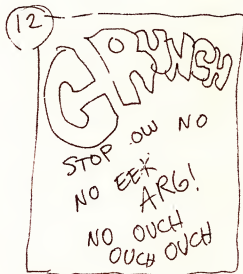 12
CRUNCH
STOP OW NO
NO EEK
ARG!
NO OUCH
OUCH OUCH